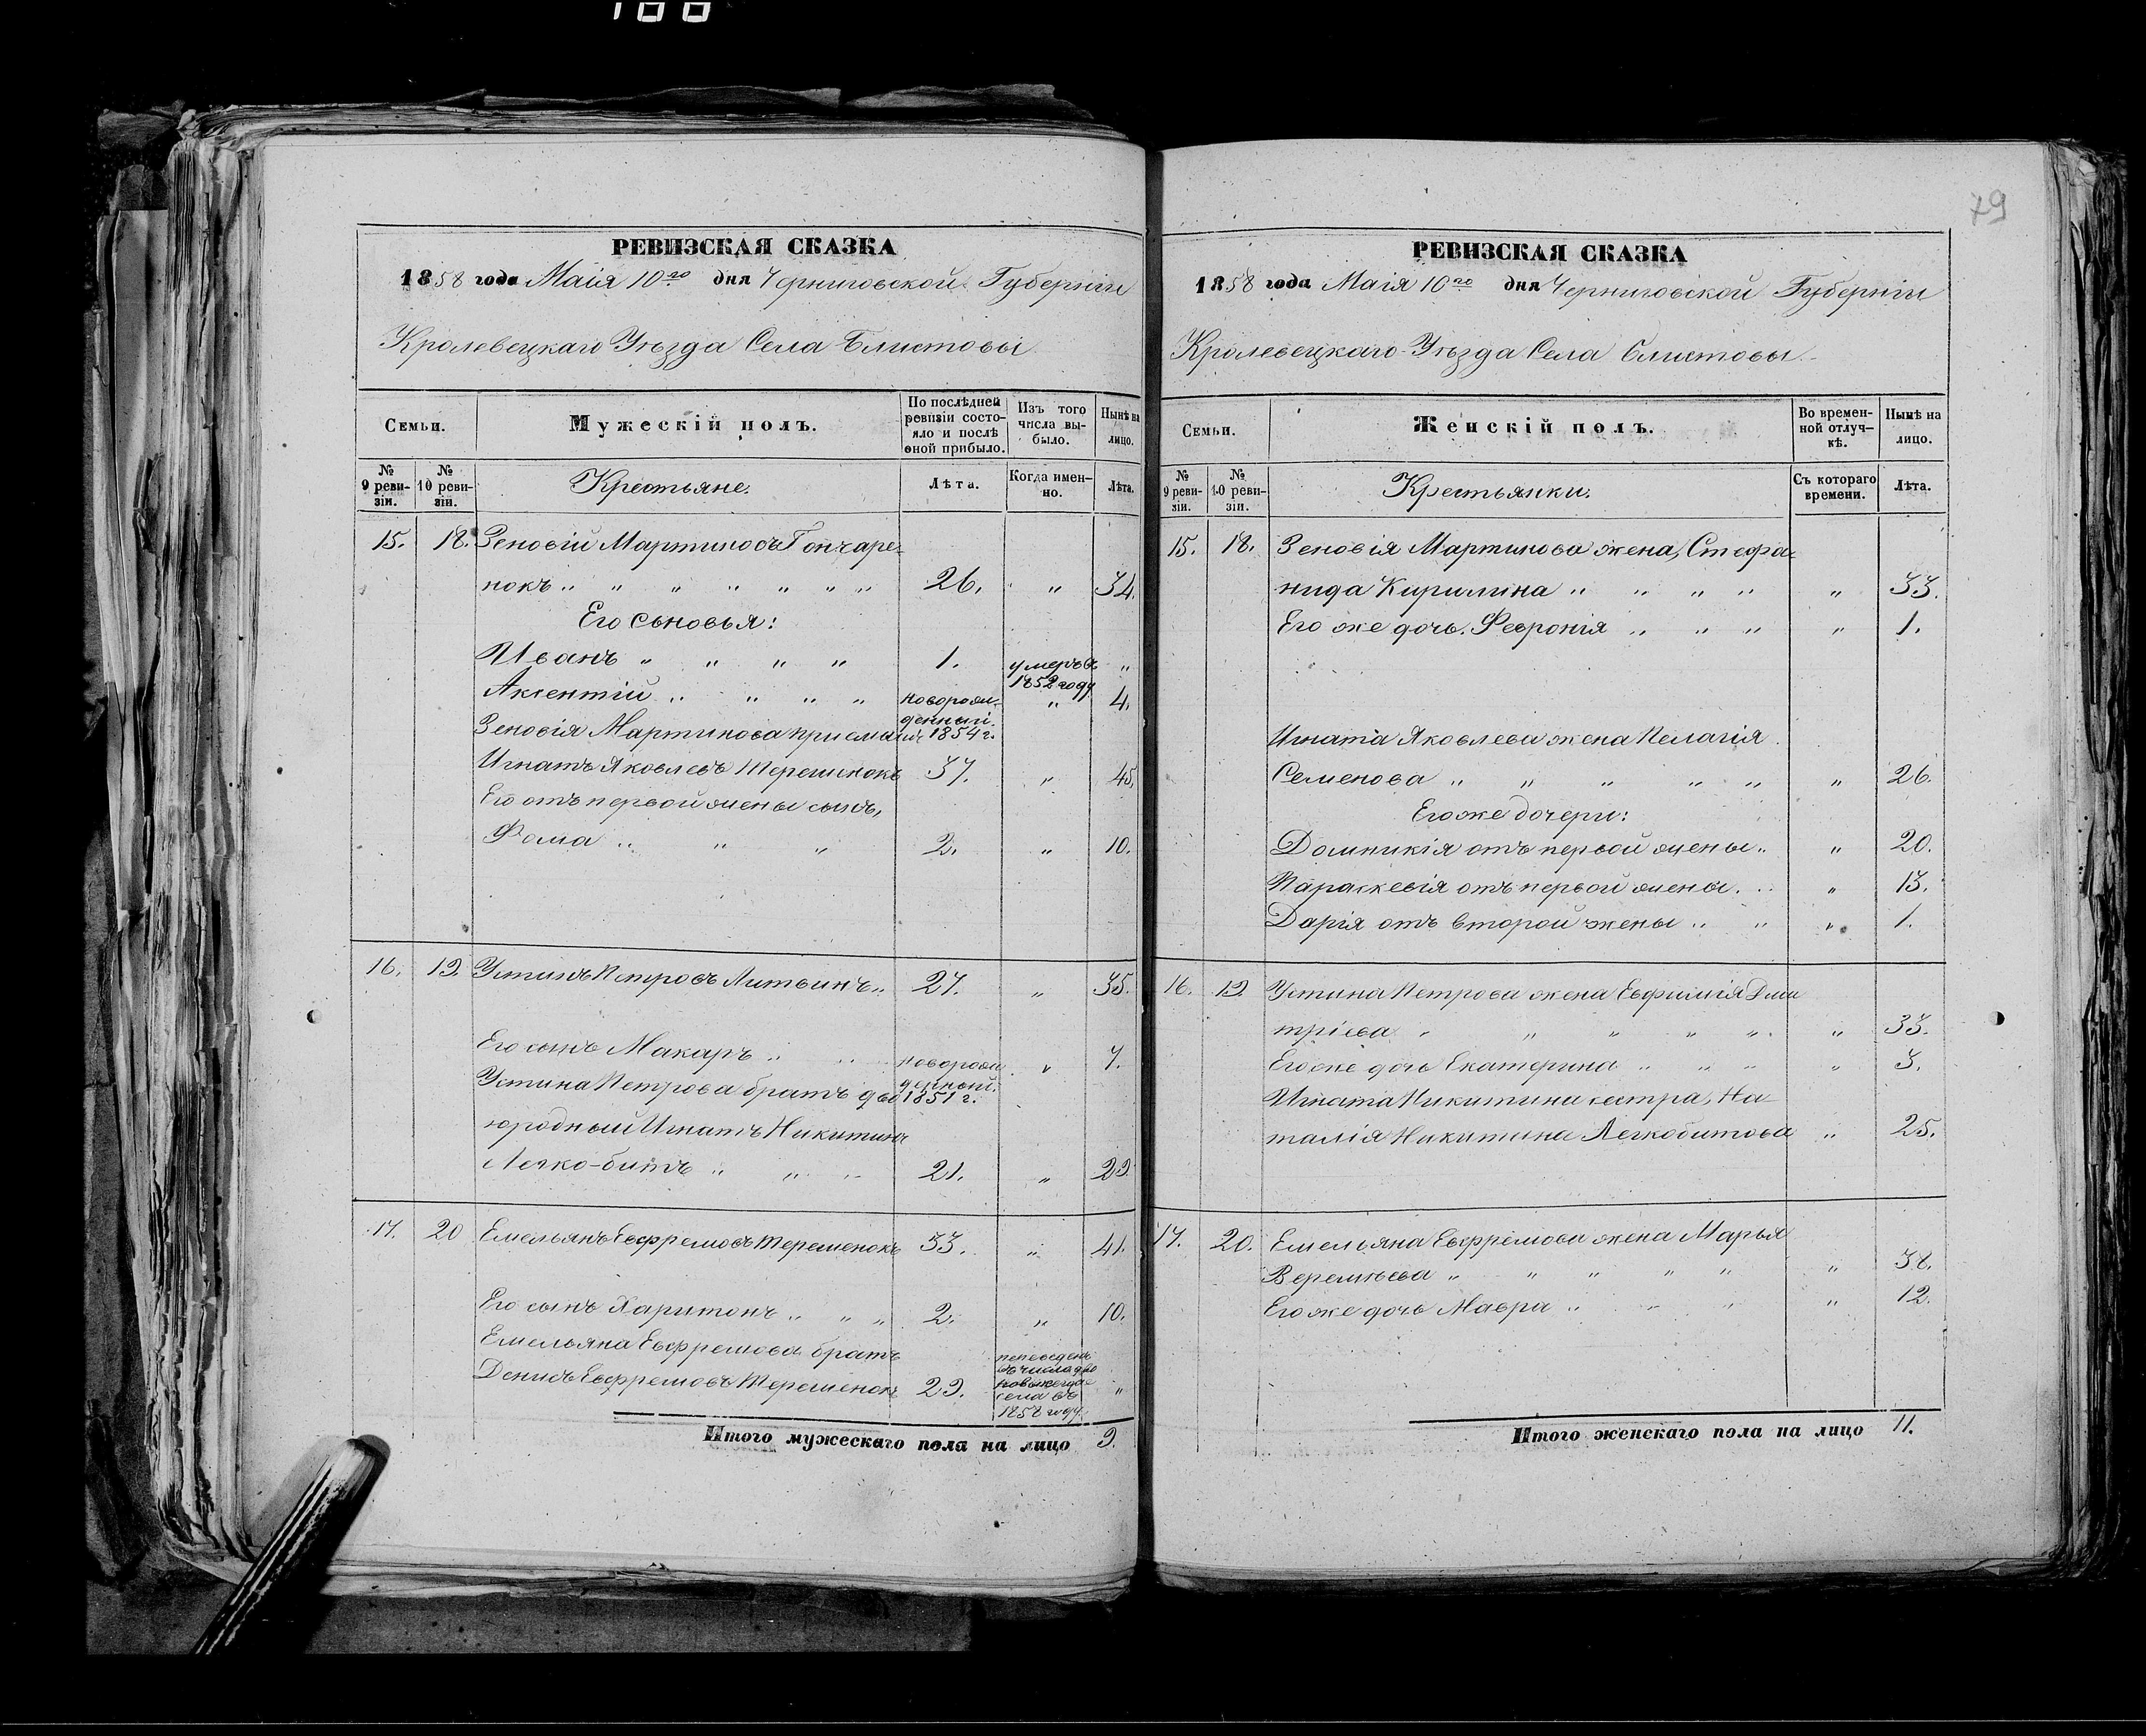 188
РЕВИЗСКАЯ СКАЗКА
1858 года Маія 10го дня Черниговской Губерніи
Кролевецкаго Уѣзда Села Блистовы
Семьи.
Мужескій полъ.
По послѣдней ревизіи состояло и послѣ оной прибыло.
Изъ того числа выбыло.
Нынѣ на лицо.
№ 9 ревизіи.
№ 10 ревизіи.
Крестьяне.
Лѣта.
Когда именно.
Лѣта.
15. 18. Зеновій Мартиновъ Гончаре-
нокъ " " " " " " " 26. " 34.
Его Сыновья:
Иванъ " " " " 1. умеръ въ 1852 году "
Аксентій " " " " новорожденный 1854 г. " 4.
Зеновія Мартинова приемышъ
Игнатъ Яковлевъ Терешенокъ 37. " 45.
Его отъ первой жены сынъ,
Фома " " " 2. " 10.
16. 19. Устинъ Петровъ Литвинъ " 27. " 35.
Его сынъ Макаръ " " новорожденный 1851 г. " 7.
Устина Петрова братъ дво
юродный Игнатъ Никитинъ
Легко-битъ " " " 21. " 29.
17. 20 Емельянъ Евфремовъ Терешенокъ 33. " 41.
Его сынъ Харитонъ " " " 2. " 10.
Емельяна Евфремова братъ
Денисъ Евфремовъ Терешенокъ 29. переведенъ въ число села въ 1858 году "
Итого мужескаго пола на лицо 9.
79
РЕВИЗСКАЯ СКАЗКА
1858 года Маія 10го дня Черниговской Губерніи
Кролевецкаго Уѣзда Села Блистовы
Семьи.
Женскій полъ.
Во временной отлучкѣ.
Нынѣ на лицо.
№ 9 ревизіи.
№ 10 ревизіи.
Крестьянки.
Съ котораго времени.
Лѣта.
15. 18. Зеновія Мартинова жена, Стефа-
нида Кирилина " " " " " 33.
Его же дочь. Феврония " " " " 1.
Игната Яковлева жена Пелагія
Семенова " " " " " " 26.
Его же дочери:
Домникія отъ первой жены " " 20.
Параскевія отъ первой жены. " " 13.
Дарія отъ второй жены " " " 1.
16. 19. Устина Петрова жена Евфимія Дми
тріева " " " " " " 33.
Его же дочь Екатерина " " " " 3.
Игната Никитина сестра, На-
талія Никитина Легкобитова " 25.
17. 20. Емельяна Евфремова жена Марья
Веремѣева " " " " " " 38.
Его же дочь Мавра " " " " 12.
Итого женскаго пола на лицо 11.